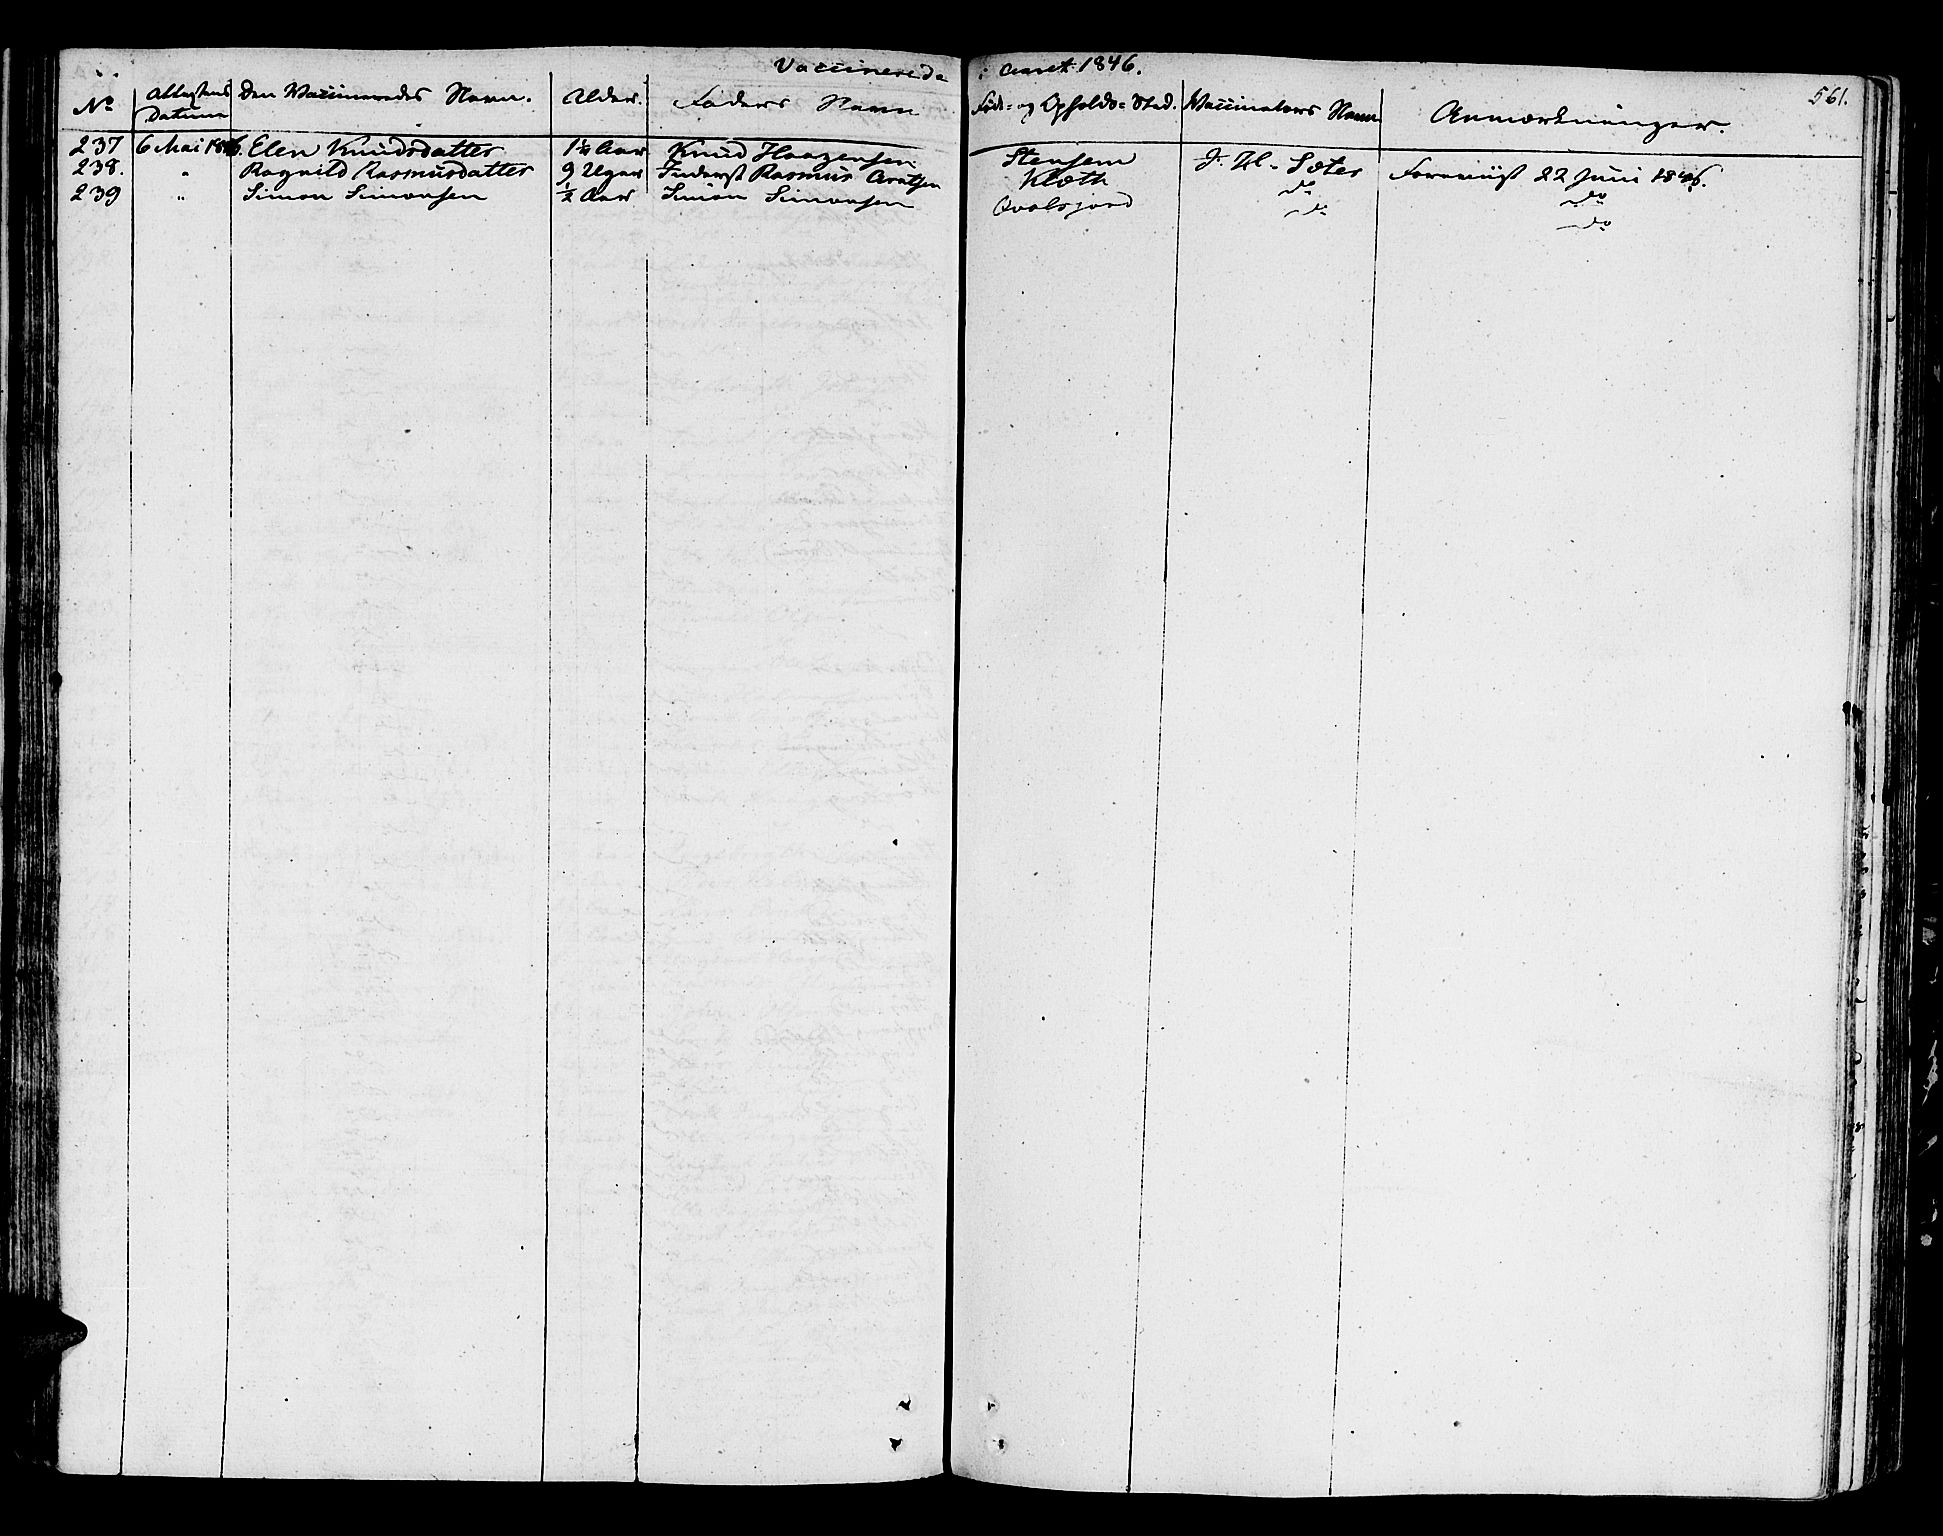 Vaccinerede i Aaret 1846.
561.
No Attestens Datum Den Vaccineredes Navn. Alder. Faders Navn Føde- og Opholds-Sted. Vaccinateurs Navn Anmærkninger.
237 6 Mai 1846. Elen Knudsdatter Aar Knud Haagensen Stensem J. Hl. Sæter Foreviist 22 Juni 1846.
238. " Ragnild Rasmusdatter 9 Uger Inderst Rasmus Kløth do do
239 " Simon Simonsen 1/2 Aar Simon Simonsen Qvalsgard do do